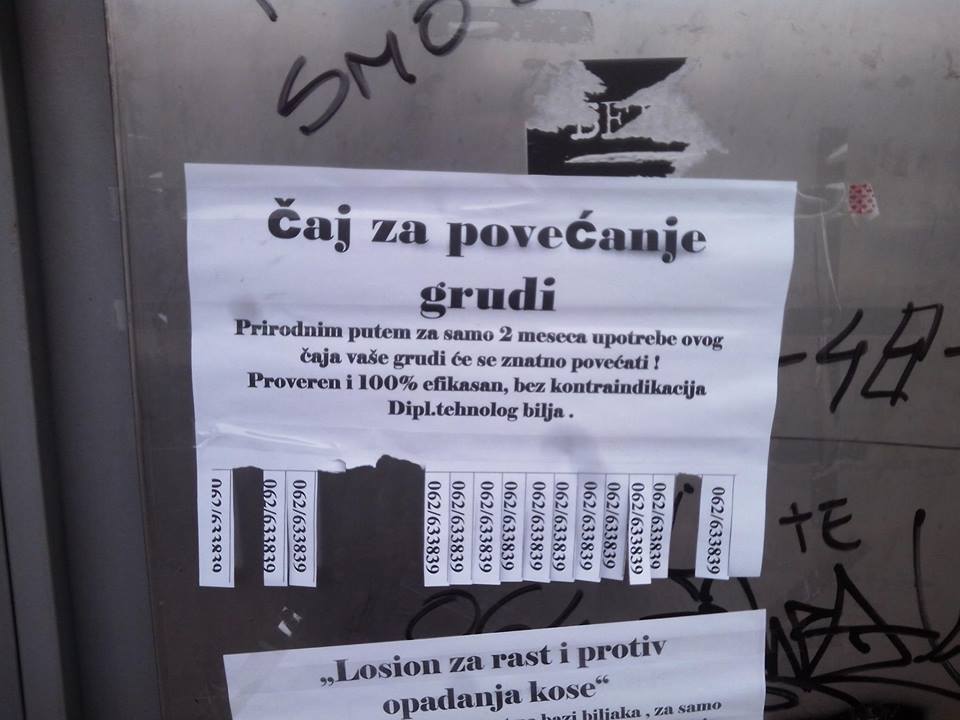 SMO
BE
čaj za povećanje
grudi
Prirodnim putem za samo 2 meseca upotrebe ovog
čaja vaše grudi će se znatno povećati !
Proveren i 100% efikasan, bez kontraindikacija
Dipl.tehnolog bilja .
062/633839
062/633839
062/633839
062/633839
062/633839
062/633839
062/633839
062/633839
062/633839
062/633839
062/633839
062/633839
062/633839
062/633839
TE
„Losion za rast i protiv
opadanja kose“
bazi biljaka , za samo